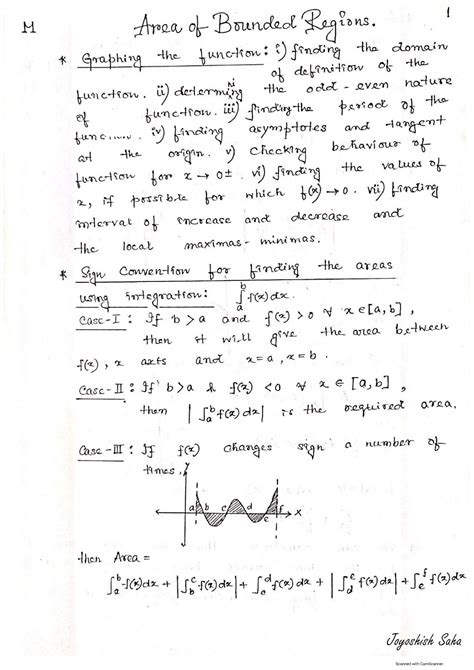 M
Area of Bounded Regions.
1
* Graphing the function: i) finding the domain
of definition of the
function. ii) determining the odd-even nature
of function. iii) finding the period of the
func iv) finding asymptotes and tangent
at the origin. v) Checking behaviour of
function for x → 0±. vi) finding the values of
x, if possible for which f(x) → 0. vii) finding
interval of increase and decrease and
the local maximas-minimas.
* Sign Convention for finding the areas
using integration: ∫_a^b f(x)dx.
Case-I: If b>a and f(x) > 0 ∀ x∈[a,b],
then it will give the area between
f(x), x axis and x=a, x=b.
Case-II: If b>a & f(x) <0 ∀ x ∈ [a,b],
then |∫_a^b f(x)dx| is the required area.
Case-III: If f(x) changes sign a number of
times,
y
a b c d e f x
then Area =
∫_a^b f(x)dx + |∫_b^c f(x)dx| + ∫_c^d f(x)dx + |∫_d^e f(x)dx| + ∫_e^f f(x)dx
Joyoshish Saha
Scanned with CamScanner